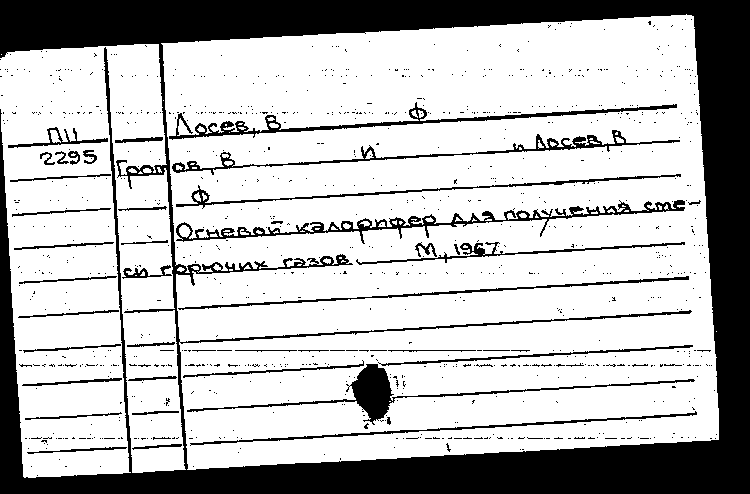 П11 Лосев, В Ф
2295 Громов, В И и Лосев, В
Ф
Огневой калорифер для получения сме-
си горючих газов. М, 1967.